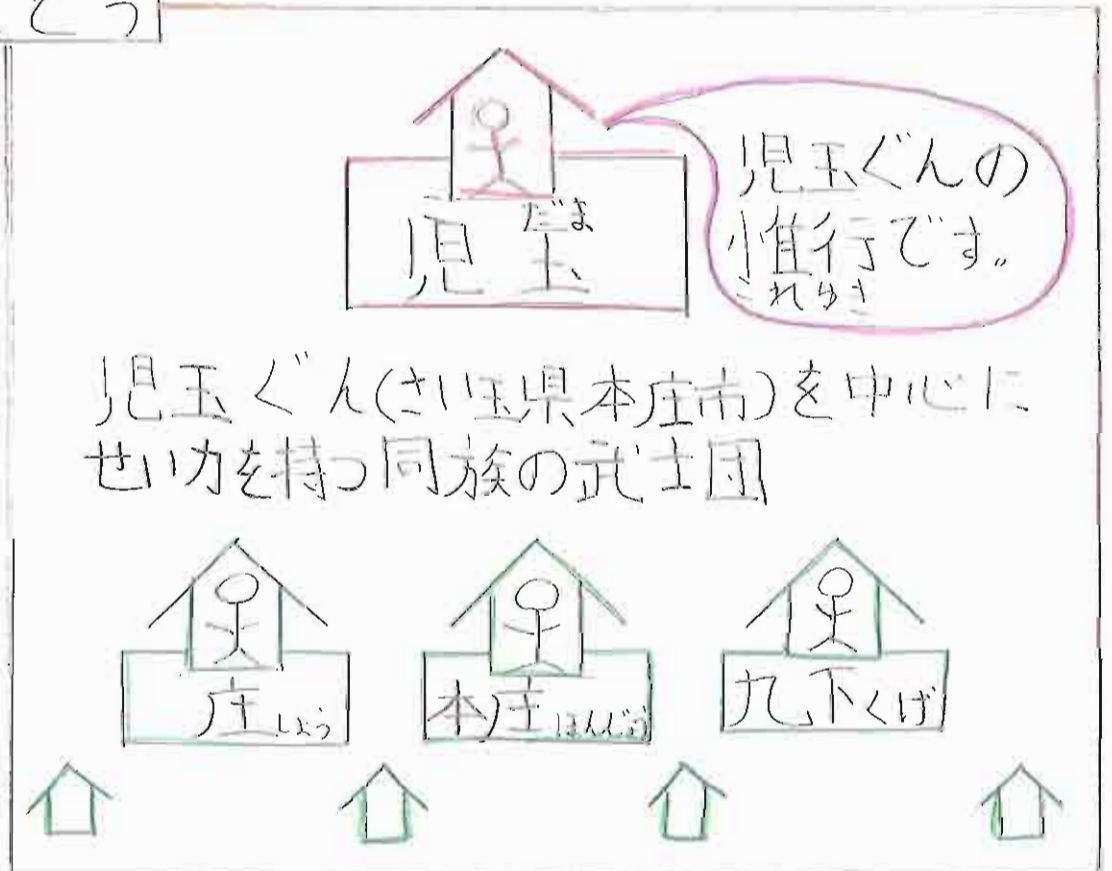 とう
こだま
児玉
児玉ぐんの
惟行です。
これゆき
児玉ぐん(さい玉県本庄市)を中心に
せい力を持つ同族の武士団
庄しょう
本庄ほんじょう
九下くげ